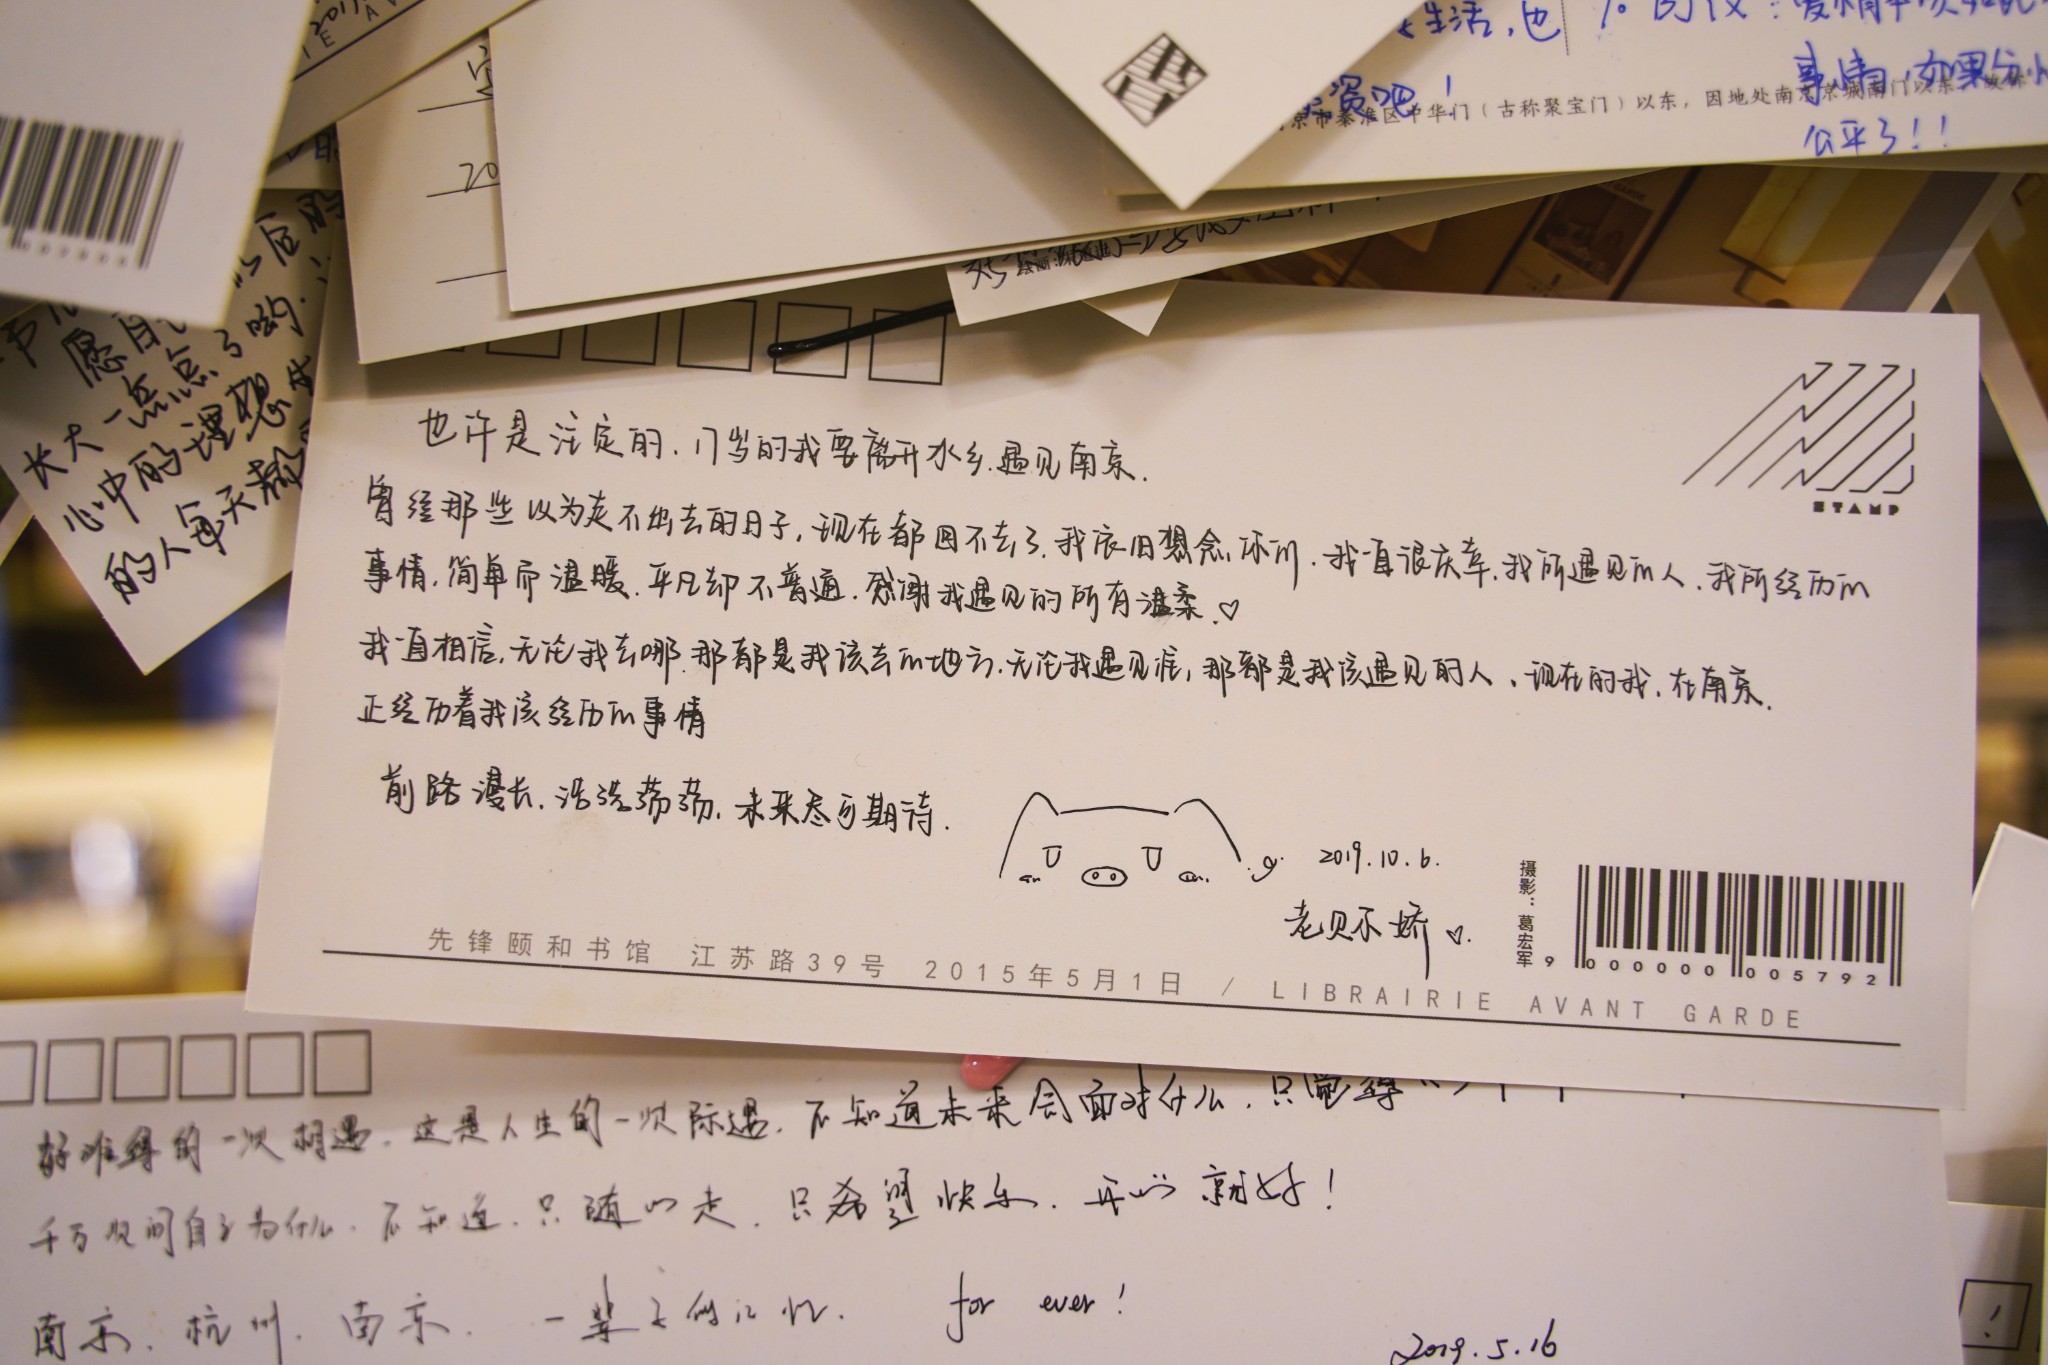 生活,也
事情,如果
公平了!!
京市秦淮区中华门(古称聚宝门)以东,因地处南京京城南门以东
長大一点点了哟
心中的理想
的人每天都
STAMP
也许是注定的,17岁的我要离开水乡.遇见南京.
曾经那些以为走不出去的日子,现在都回不去了.我依旧想念.我一直很庆幸,我所遇见的人.我所经历的
事情.简单而温暖.平凡却不普通.感谢我遇见的所有温柔.♡
我一直相信,无论我去哪.那都是我该去的地方.无论我遇见谁,那都是我该遇见的人.现在的我.在南京.
正经历着我该经历的事情
前路漫长.浩浩荡荡.未来尽可期待.
2019.10.6.
老贝不娇♡.
摄影:葛宏军
9 000000 005792
先锋颐和书馆 江苏路39号 2015年5月1日 / LIBRAIRIE AVANT GARDE
好难得的一次相遇.这是人生的一次际遇.不知道未来会面对什么.只觉得
千万次问自己为什么.不知道.只随心走.只希望快乐.开心就好!
南京.杭州.南京.一辈子的记忆. for ever!
2019.5.16